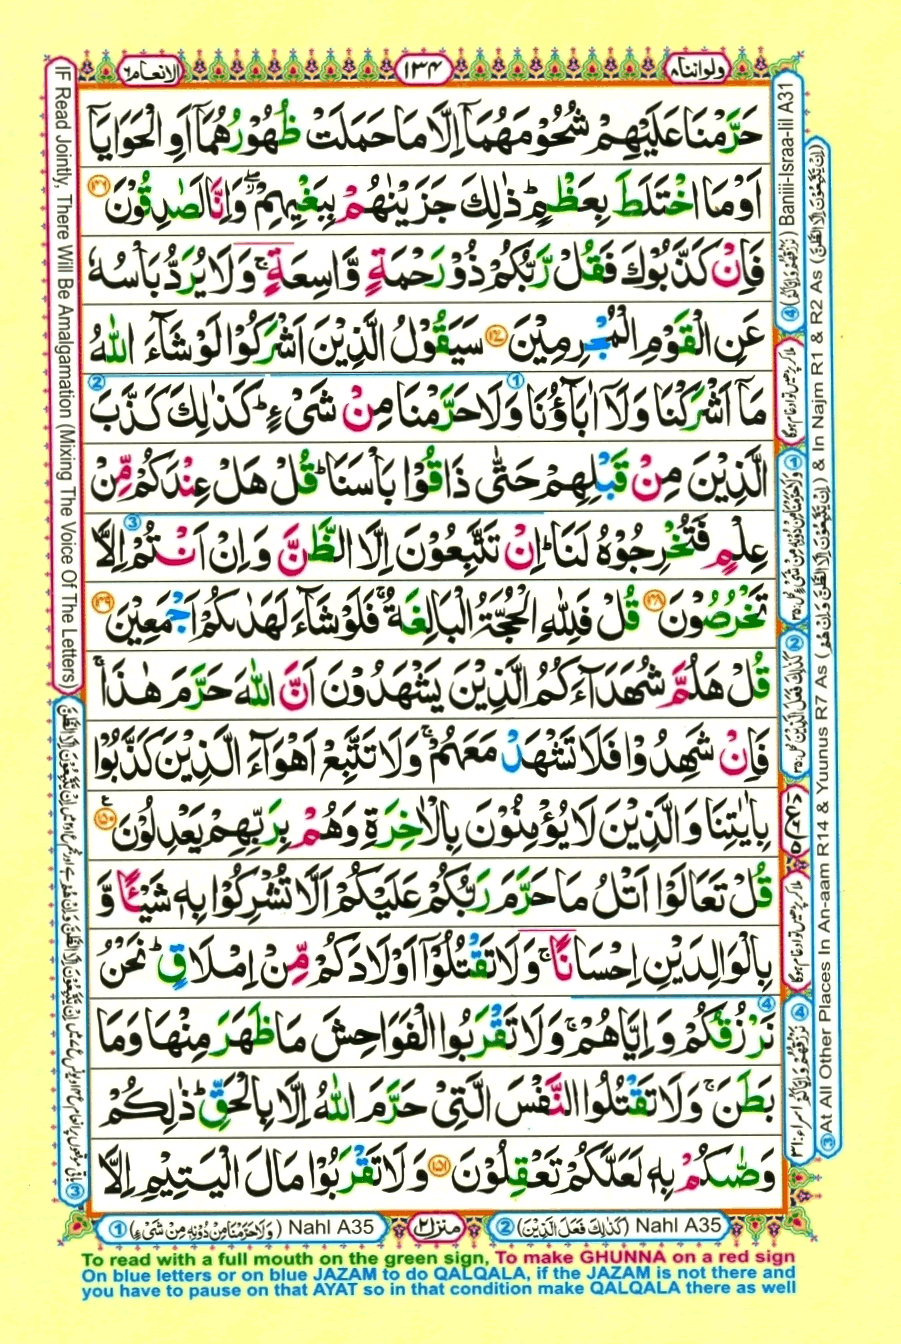 ولواننا ٨
١٣٤
الانعام ٦
حَرَّمْنَا عَلَيْهِمْ شُحُوْمَهُمَاۤ اِلَّا مَا حَمَلَتْ ظُهُوْرُهُمَاۤ اَوِ الْحَوَايَاۤ
اَوْ مَا اخْتَلَطَ بِعَظْمٍ ؕ ذٰلِكَ جَزَيْنٰهُمْ بِبَغْيِهِمْ ۖؗ وَاِنَّا لَصٰدِقُوْنَ ﴿۱۴۶﴾
فَاِنْ كَذَّبُوْكَ فَقُلْ رَّبُّكُمْ ذُوْ رَحْمَةٍ وَّاسِعَةٍ ۚ وَلَا يُرَدُّ بَاْسُهٗ
عَنِ الْقَوْمِ الْمُجْرِمِيْنَ ﴿۱۴۷﴾ سَيَقُوْلُ الَّذِيْنَ اَشْرَكُوْا لَوْ شَآءَ اللّٰهُ
مَاۤ اَشْرَكْنَا وَلَاۤ اٰبَآؤُنَا وَلَا حَرَّمْنَا مِنْ شَىْءٍ ؕ كَذٰلِكَ كَذَّبَ
الَّذِيْنَ مِنْ قَبْلِهِمْ حَتّٰى ذَاقُوْا بَاْسَنَا ؕ قُلْ هَلْ عِنْدَكُمْ مِّنْ
عِلْمٍ فَتُخْرِجُوْهُ لَنَا ؕ اِنْ تَتَّبِعُوْنَ اِلَّا الظَّنَّ وَاِنْ اَنْتُمْ اِلَّا
تَخْرُصُوْنَ ﴿۱۴۸﴾ قُلْ فَلِلّٰهِ الْحُجَّةُ الْبَالِغَةُ ۚ فَلَوْ شَآءَ لَهَدٰىكُمْ اَجْمَعِيْنَ ﴿۱۴۹﴾
قُلْ هَلُمَّ شُهَدَآءَكُمُ الَّذِيْنَ يَشْهَدُوْنَ اَنَّ اللّٰهَ حَرَّمَ هٰذَا ۚ
فَاِنْ شَهِدُوْا فَلَا تَشْهَدْ مَعَهُمْ ۚ وَلَا تَتَّبِعْ اَهْوَآءَ الَّذِيْنَ كَذَّبُوْا
بِاٰيٰتِنَا وَالَّذِيْنَ لَا يُؤْمِنُوْنَ بِالْاٰخِرَةِ وَهُمْ بِرَبِّهِمْ يَعْدِلُوْنَ ﴿۱۵۰﴾
قُلْ تَعَالَوْا اَتْلُ مَا حَرَّمَ رَبُّكُمْ عَلَيْكُمْ اَلَّا تُشْرِكُوْا بِهٖ شَيْـًٔا وَّ
بِالْوَالِدَيْنِ اِحْسَانًا ۚ وَلَا تَقْتُلُوْۤا اَوْلَادَكُمْ مِّنْ اِمْلَاقٍ ؕ نَحْنُ
نَرْزُقُكُمْ وَاِيَّاهُمْ ۚ وَلَا تَقْرَبُوا الْفَوَاحِشَ مَا ظَهَرَ مِنْهَا وَمَا
بَطَنَ ۚ وَلَا تَقْتُلُوا النَّفْسَ الَّتِىْ حَرَّمَ اللّٰهُ اِلَّا بِالْحَقِّ ؕ ذٰلِكُمْ
وَصّٰىكُمْ بِهٖ لَعَلَّكُمْ تَعْقِلُوْنَ ﴿۱۵۱﴾ وَلَا تَقْرَبُوْا مَالَ الْيَتِيْمِ اِلَّا
IF Read Jointly, There Will Be Amalgamation (Mixing The Voice Of The Letters)
④ (نَرْزُقُهُمْ وَاِيَّاكُمْ) Baniii-Israa-Iil A31
③ At All Other Places In An-aam R14 & Yuunus R7 As (اِنْ يَّتَّبِعُوْنَ اِلَّا الظَّنَّ وَاِنْ هُمْ) & In Najm R1 & R2 As (اِنْ يَّتَّبِعُوْنَ اِلَّا الظَّنَّ)
① (وَلَا حَرَّمْنَا مِنْ دُوْنِهٖ مِنْ شَىْءٍ) Nahl A35
منزل ٢
② (كَذٰلِكَ فَعَلَ الَّذِيْنَ) Nahl A35
To read with a full mouth on the green sign, To make GHUNNA on a red sign
On blue letters or on blue JAZAM to do QALQALA, if the JAZAM is not there and
you have to pause on that AYAT so in that condition make QALQALA there as well